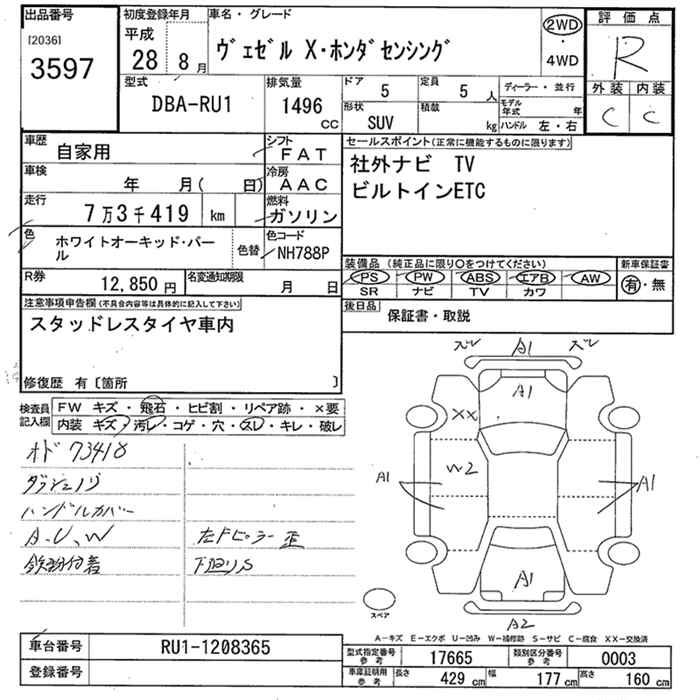 出品番号
[2036]
3597
初度登録年月
平成
28 8月
車名・グレード
ヴェゼル X・ホンダセンシング
2WD
・
4WD
評価点
R
外装 内装
C C
型式
DBA-RU1
排気量
1496
CC
ドア
5
定員
5 人
形状
SUV
積載
kg
ディーラー・並行
モデル年式 年
ハンドル 左・右
車歴
自家用
シフト
FAT
車検
年 月( 日)
冷房
AAC
走行
7万3千419 km
燃料
ガソリン
色
ホワイトオーキッド・パール
色替
色コード
NH788P
R券
12,850円
名変通知期限
月 日
セールスポイント(正常に機能するものに限ります)
社外ナビ TV
ビルトインETC
装備品(純正品に限り○をつけてください)
PS PW ABS エアB AW
SR ナビ TV カワ
新車保証書
有・無
後日品
保証書・取説
注意事項申告欄(不具合内容等は具体的に記入して下さい)
スタッドレスタイヤ車内
修復歴 有〔箇所 〕
検査員記入欄
FW キズ・飛石・ヒビ割・リペア跡・×要
内装 キズ・汚レ・コゲ・穴・スレ・キレ・破レ
オド 73418
ハンドルカバー
A、U、W
鉄粉付着
左Fピラー歪
下廻りS
ズレ A1 ズレ
A1
XX
W2
A1
A1
A1
A2
スペア
A-キズ E-エクボ U-凹み W-補修跡 S-サビ C-腐食 XX-交換済
車台番号
RU1-1208365
登録番号
型式指定番号
参考
17665
類別区分番号
参考
0003
車庫証明用
参考
長さ 429 cm 幅 177 cm 高さ 160 cm